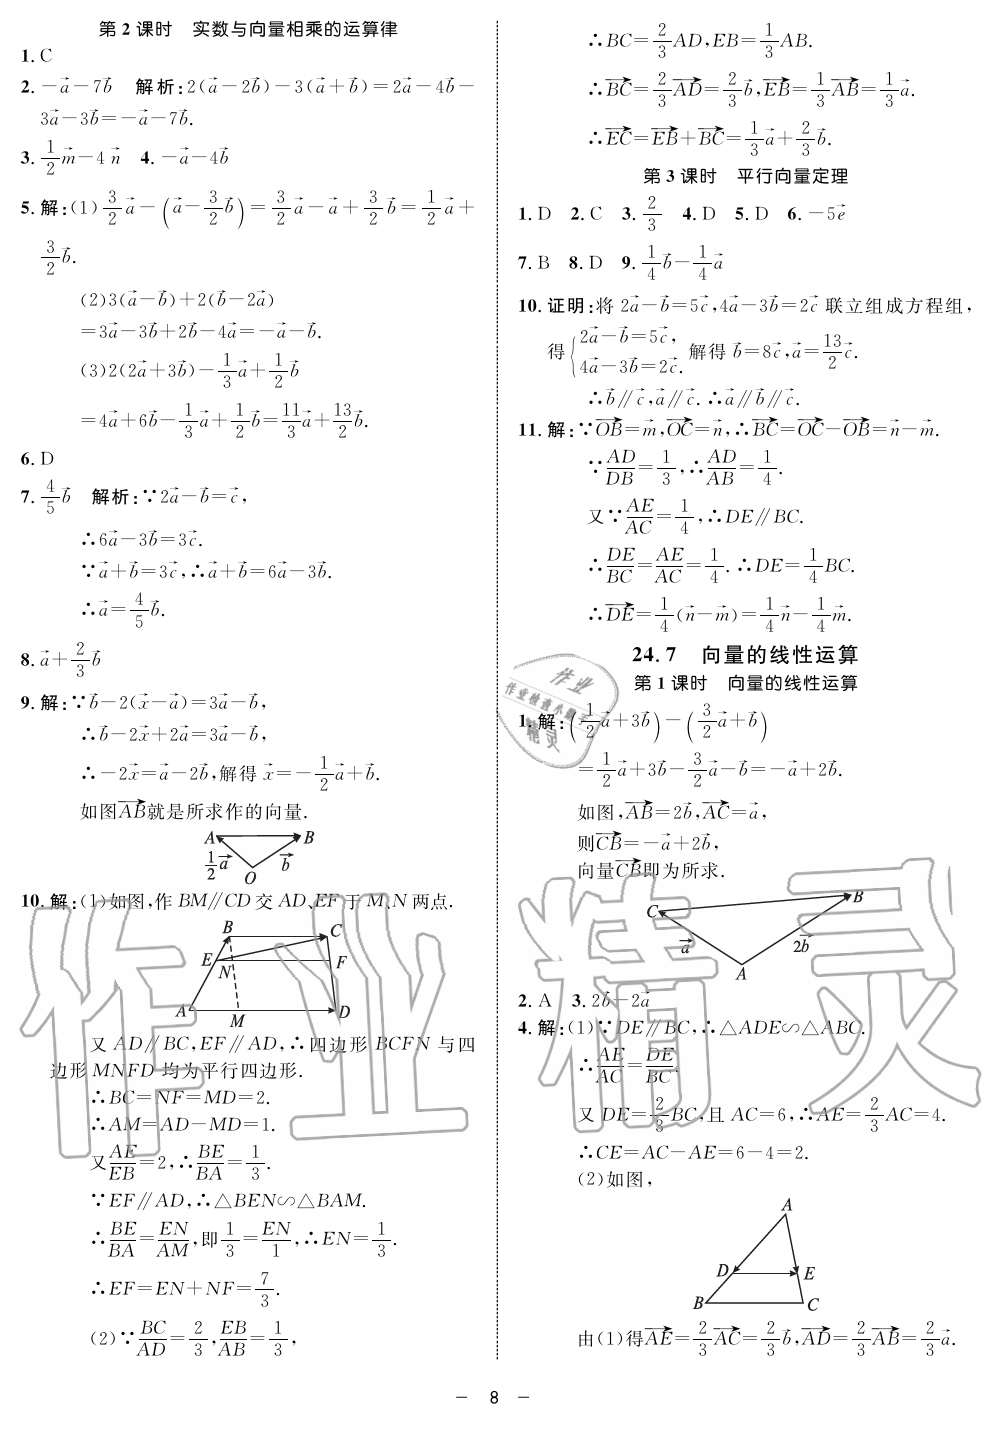 第 2 课时 实数与向量相乘的运算律
1. C
2. $-\vec{a}-7\vec{b}$ 解析:$2(\vec{a}-2\vec{b})-3(\vec{a}+\vec{b})=2\vec{a}-4\vec{b}-$
$3\vec{a}-3\vec{b}=-\vec{a}-7\vec{b}$.
3. $\frac{1}{2}\vec{m}-4\vec{n}$ 4. $-\vec{a}-4\vec{b}$
5. 解:(1)$\frac{3}{2}\vec{a}-\left(\vec{a}-\frac{3}{2}\vec{b}\right)=\frac{3}{2}\vec{a}-\vec{a}+\frac{3}{2}\vec{b}=\frac{1}{2}\vec{a}+$
$\frac{3}{2}\vec{b}$.
(2)$3(\vec{a}-\vec{b})+2(\vec{b}-2\vec{a})$
$=3\vec{a}-3\vec{b}+2\vec{b}-4\vec{a}=-\vec{a}-\vec{b}$.
(3)$2(2\vec{a}+3\vec{b})-\frac{1}{3}\vec{a}+\frac{1}{2}\vec{b}$
$=4\vec{a}+6\vec{b}-\frac{1}{3}\vec{a}+\frac{1}{2}\vec{b}=\frac{11}{3}\vec{a}+\frac{13}{2}\vec{b}$.
6. D
7. $\frac{4}{5}\vec{b}$ 解析:∵$2\vec{a}-\vec{b}=\vec{c}$,
∴$6\vec{a}-3\vec{b}=3\vec{c}$.
∵$\vec{a}+\vec{b}=3\vec{c}$,∴$\vec{a}+\vec{b}=6\vec{a}-3\vec{b}$.
∴$\vec{a}=\frac{4}{5}\vec{b}$.
8. $\vec{a}+\frac{2}{3}\vec{b}$
9. 解:∵$\vec{b}-2(\vec{x}-\vec{a})=3\vec{a}-\vec{b}$,
∴$\vec{b}-2\vec{x}+2\vec{a}=3\vec{a}-\vec{b}$,
∴$-2\vec{x}=\vec{a}-2\vec{b}$,解得 $\vec{x}=-\frac{1}{2}\vec{a}+\vec{b}$.
如图$\overrightarrow{AB}$就是所求作的向量.
A B
$\frac{1}{2}\vec{a}$ $\vec{b}$
O
10. 解:(1)如图,作 BM∥CD 交 AD、EF 于 M、N 两点.
B C
E N F
A M D
又 AD∥BC,EF∥AD,∴四边形 BCFN 与四
边形 MNFD 均为平行四边形.
∴BC=NF=MD=2.
∴AM=AD-MD=1.
又$\frac{AE}{EB}=2$,∴$\frac{BE}{BA}=\frac{1}{3}$.
∵EF∥AD,∴△BEN∽△BAM.
∴$\frac{BE}{BA}=\frac{EN}{AM}$,即$\frac{1}{3}=\frac{EN}{1}$,∴$EN=\frac{1}{3}$.
∴$EF=EN+NF=\frac{7}{3}$.
(2)∵$\frac{BC}{AD}=\frac{2}{3}$,$\frac{EB}{AB}=\frac{1}{3}$,
∴$BC=\frac{2}{3}AD$,$EB=\frac{1}{3}AB$.
∴$\overrightarrow{BC}=\frac{2}{3}\overrightarrow{AD}=\frac{2}{3}\vec{b}$,$\overrightarrow{EB}=\frac{1}{3}\overrightarrow{AB}=\frac{1}{3}\vec{a}$.
∴$\overrightarrow{EC}=\overrightarrow{EB}+\overrightarrow{BC}=\frac{1}{3}\vec{a}+\frac{2}{3}\vec{b}$.
第 3 课时 平行向量定理
1. D 2. C 3. $\frac{2}{3}$ 4. D 5. D 6. $-5\vec{e}$
7. B 8. D 9. $\frac{1}{4}\vec{b}-\frac{1}{4}\vec{a}$
10. 证明:将 $2\vec{a}-\vec{b}=5\vec{c}$,$4\vec{a}-3\vec{b}=2\vec{c}$ 联立组成方程组,
得$\begin{cases}2\vec{a}-\vec{b}=5\vec{c},\\4\vec{a}-3\vec{b}=2\vec{c}.\end{cases}$解得 $\vec{b}=8\vec{c}$,$\vec{a}=\frac{13}{2}\vec{c}$.
∴$\vec{b}∥\vec{c}$,$\vec{a}∥\vec{c}$.∴$\vec{a}∥\vec{b}∥\vec{c}$.
11. 解:∵$\overrightarrow{OB}=\vec{m}$,$\overrightarrow{OC}=\vec{n}$,∴$\overrightarrow{BC}=\overrightarrow{OC}-\overrightarrow{OB}=\vec{n}-\vec{m}$.
∵$\frac{AD}{DB}=\frac{1}{3}$,∴$\frac{AD}{AB}=\frac{1}{4}$.
又∵$\frac{AE}{AC}=\frac{1}{4}$,∴DE∥BC.
∴$\frac{DE}{BC}=\frac{AE}{AC}=\frac{1}{4}$.∴$DE=\frac{1}{4}BC$.
∴$\overrightarrow{DE}=\frac{1}{4}(\vec{n}-\vec{m})=\frac{1}{4}\vec{n}-\frac{1}{4}\vec{m}$.
24.7 向量的线性运算
第 1 课时 向量的线性运算
1. 解:$\left(\frac{1}{2}\vec{a}+3\vec{b}\right)-\left(\frac{3}{2}\vec{a}+\vec{b}\right)$
$=\frac{1}{2}\vec{a}+3\vec{b}-\frac{3}{2}\vec{a}-\vec{b}=-\vec{a}+2\vec{b}$.
如图,$\overrightarrow{AB}=2\vec{b}$,$\overrightarrow{AC}=\vec{a}$,
则$\overrightarrow{CB}=-\vec{a}+2\vec{b}$,
向量$\overrightarrow{CB}$即为所求.
C B
$\vec{a}$ $2\vec{b}$
A
2. A 3. $2\vec{b}-2\vec{a}$
4. 解:(1)∵DE∥BC,∴△ADE∽△ABC.
∴$\frac{AE}{AC}=\frac{DE}{BC}$.
又 $DE=\frac{2}{3}BC$,且 AC=6,∴$AE=\frac{2}{3}AC=4$.
∴CE=AC-AE=6-4=2.
(2)如图,
A
D E
B C
由(1)得$\overrightarrow{AE}=\frac{2}{3}\overrightarrow{AC}=\frac{2}{3}\vec{b}$,$\overrightarrow{AD}=\frac{2}{3}\overrightarrow{AB}=\frac{2}{3}\vec{a}$.
作业
作业检查小助手
精灵
作业精灵
- 8 -